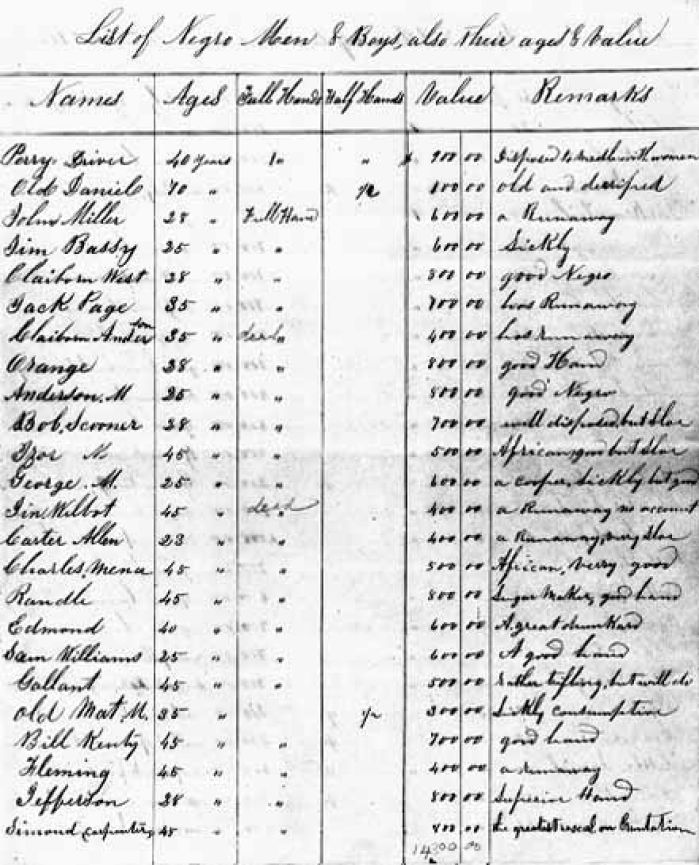 List of Negro Men & Boys, also their ages & Value
Names Ages Full Hands Half Hands Value Remarks
Perry Driver 40 years 1 " " $ 900 00 Disposed to meddle with women
Old Daniel 70 " 1/2 100 00 old and
John Miller 28 " Full Hand 600 00 a Runaway
Jim Bassy 25 " " 600 00 Sickly
Claiborn West 28 " " 800 00 good Negro
Jack Page 35 " " 700 00 has Runaway
Claiborn Anderson 35 " dead " 400 00 has run away
Orange 28 " " 800 00 good Hand
Anderson. M 25 " " 800 00 good Negro
Bob, Scooner 28 " " 700 00 well disposed but slow
45 " " 500 00 African, good but slow
George. M. 25 " " 600 00 a cooper, Sickly but good
Jim Wilbot 45 " dead " 400 00 a Runaway no account
Carter Allen 23 " " 400 00 a Runaway, very slow
Charles, Mena 45 " " 500 00 African, very good
Randle 45 " " 800 00 Sugar Maker, good hand
Edmond 40 " " 600 00 A great drunkard
Sam Williams 25 " " 600 00 A good hand
Gallant 45 " " 500 00 rather trifling, but will do
Old Mat, M. 35 " 1/2 300 00 Sickly consumptive
Bill Kenty 45 " " 700 00 good hand
Fleming 45 " " 400 00 a runaway
Jefferson 28 " " 800 00 Superior Hand
Simond carpenter, 45 " " 800 00 the greatest rascal on Plantation